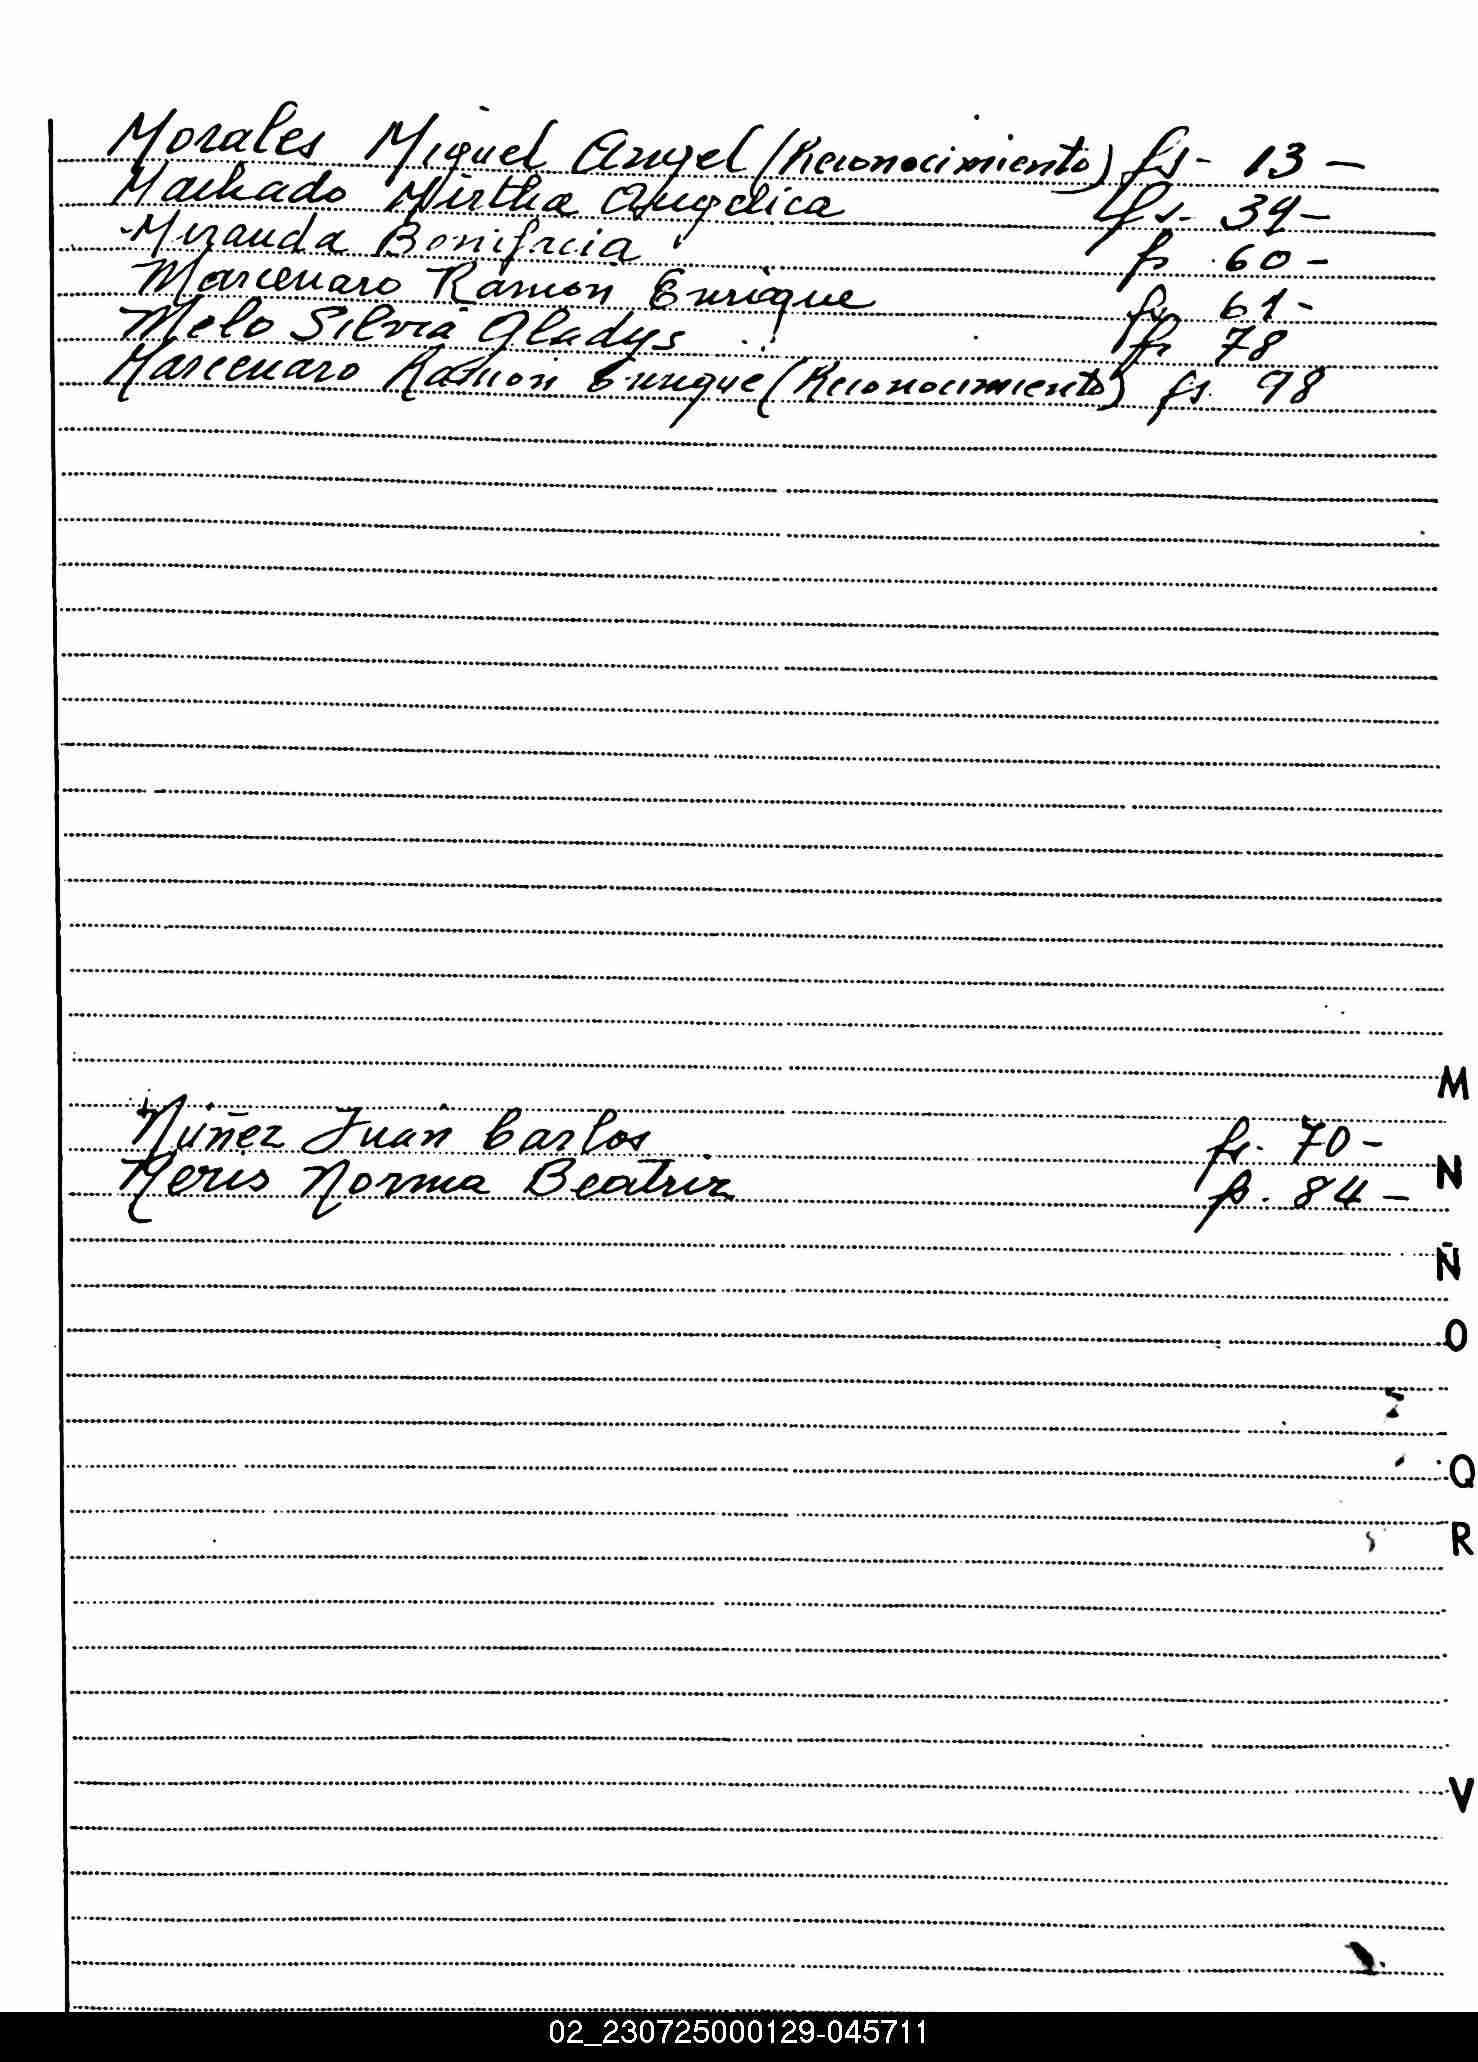 Morales Miguel Angel (Reconocimiento) fs- 13 -
Machado Mirtha Angelica fs. 39 -
Miranda Bonifacia fs 60 -
Marcenaro Ramón Enrique fs 61 -
Melo Silvia Gladys fs 78
Marcenaro Ramón Enrique (Reconocimiento) fs. 98
M
Núñez Juan Carlos fs. 70 -
N
Neris Norma Beatriz fs. 84 -
Ñ
O
Q
R
V
02_230725000129-045711